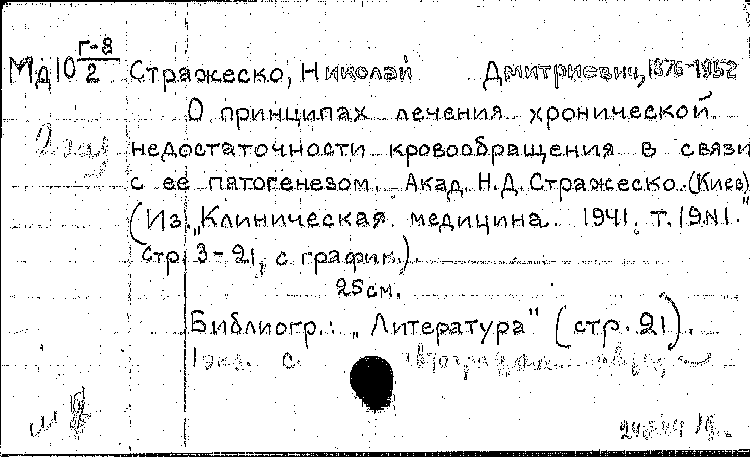 Мд10 г-8/2 Стражеско, Николай Дмитриевич, 1876-1952
О принципах лечения хронической
недостаточности кровообращения в связи
с ее патогенезом. Акад. Н.Д. Стражеско. (Киев)
(Из „Клиническая медицина. 1941. Т. 19 №1."
стр. 3-21, с график.).
25 см.
Библиогр.: „Литература" (стр. 21).
1 экз. с автографом автора